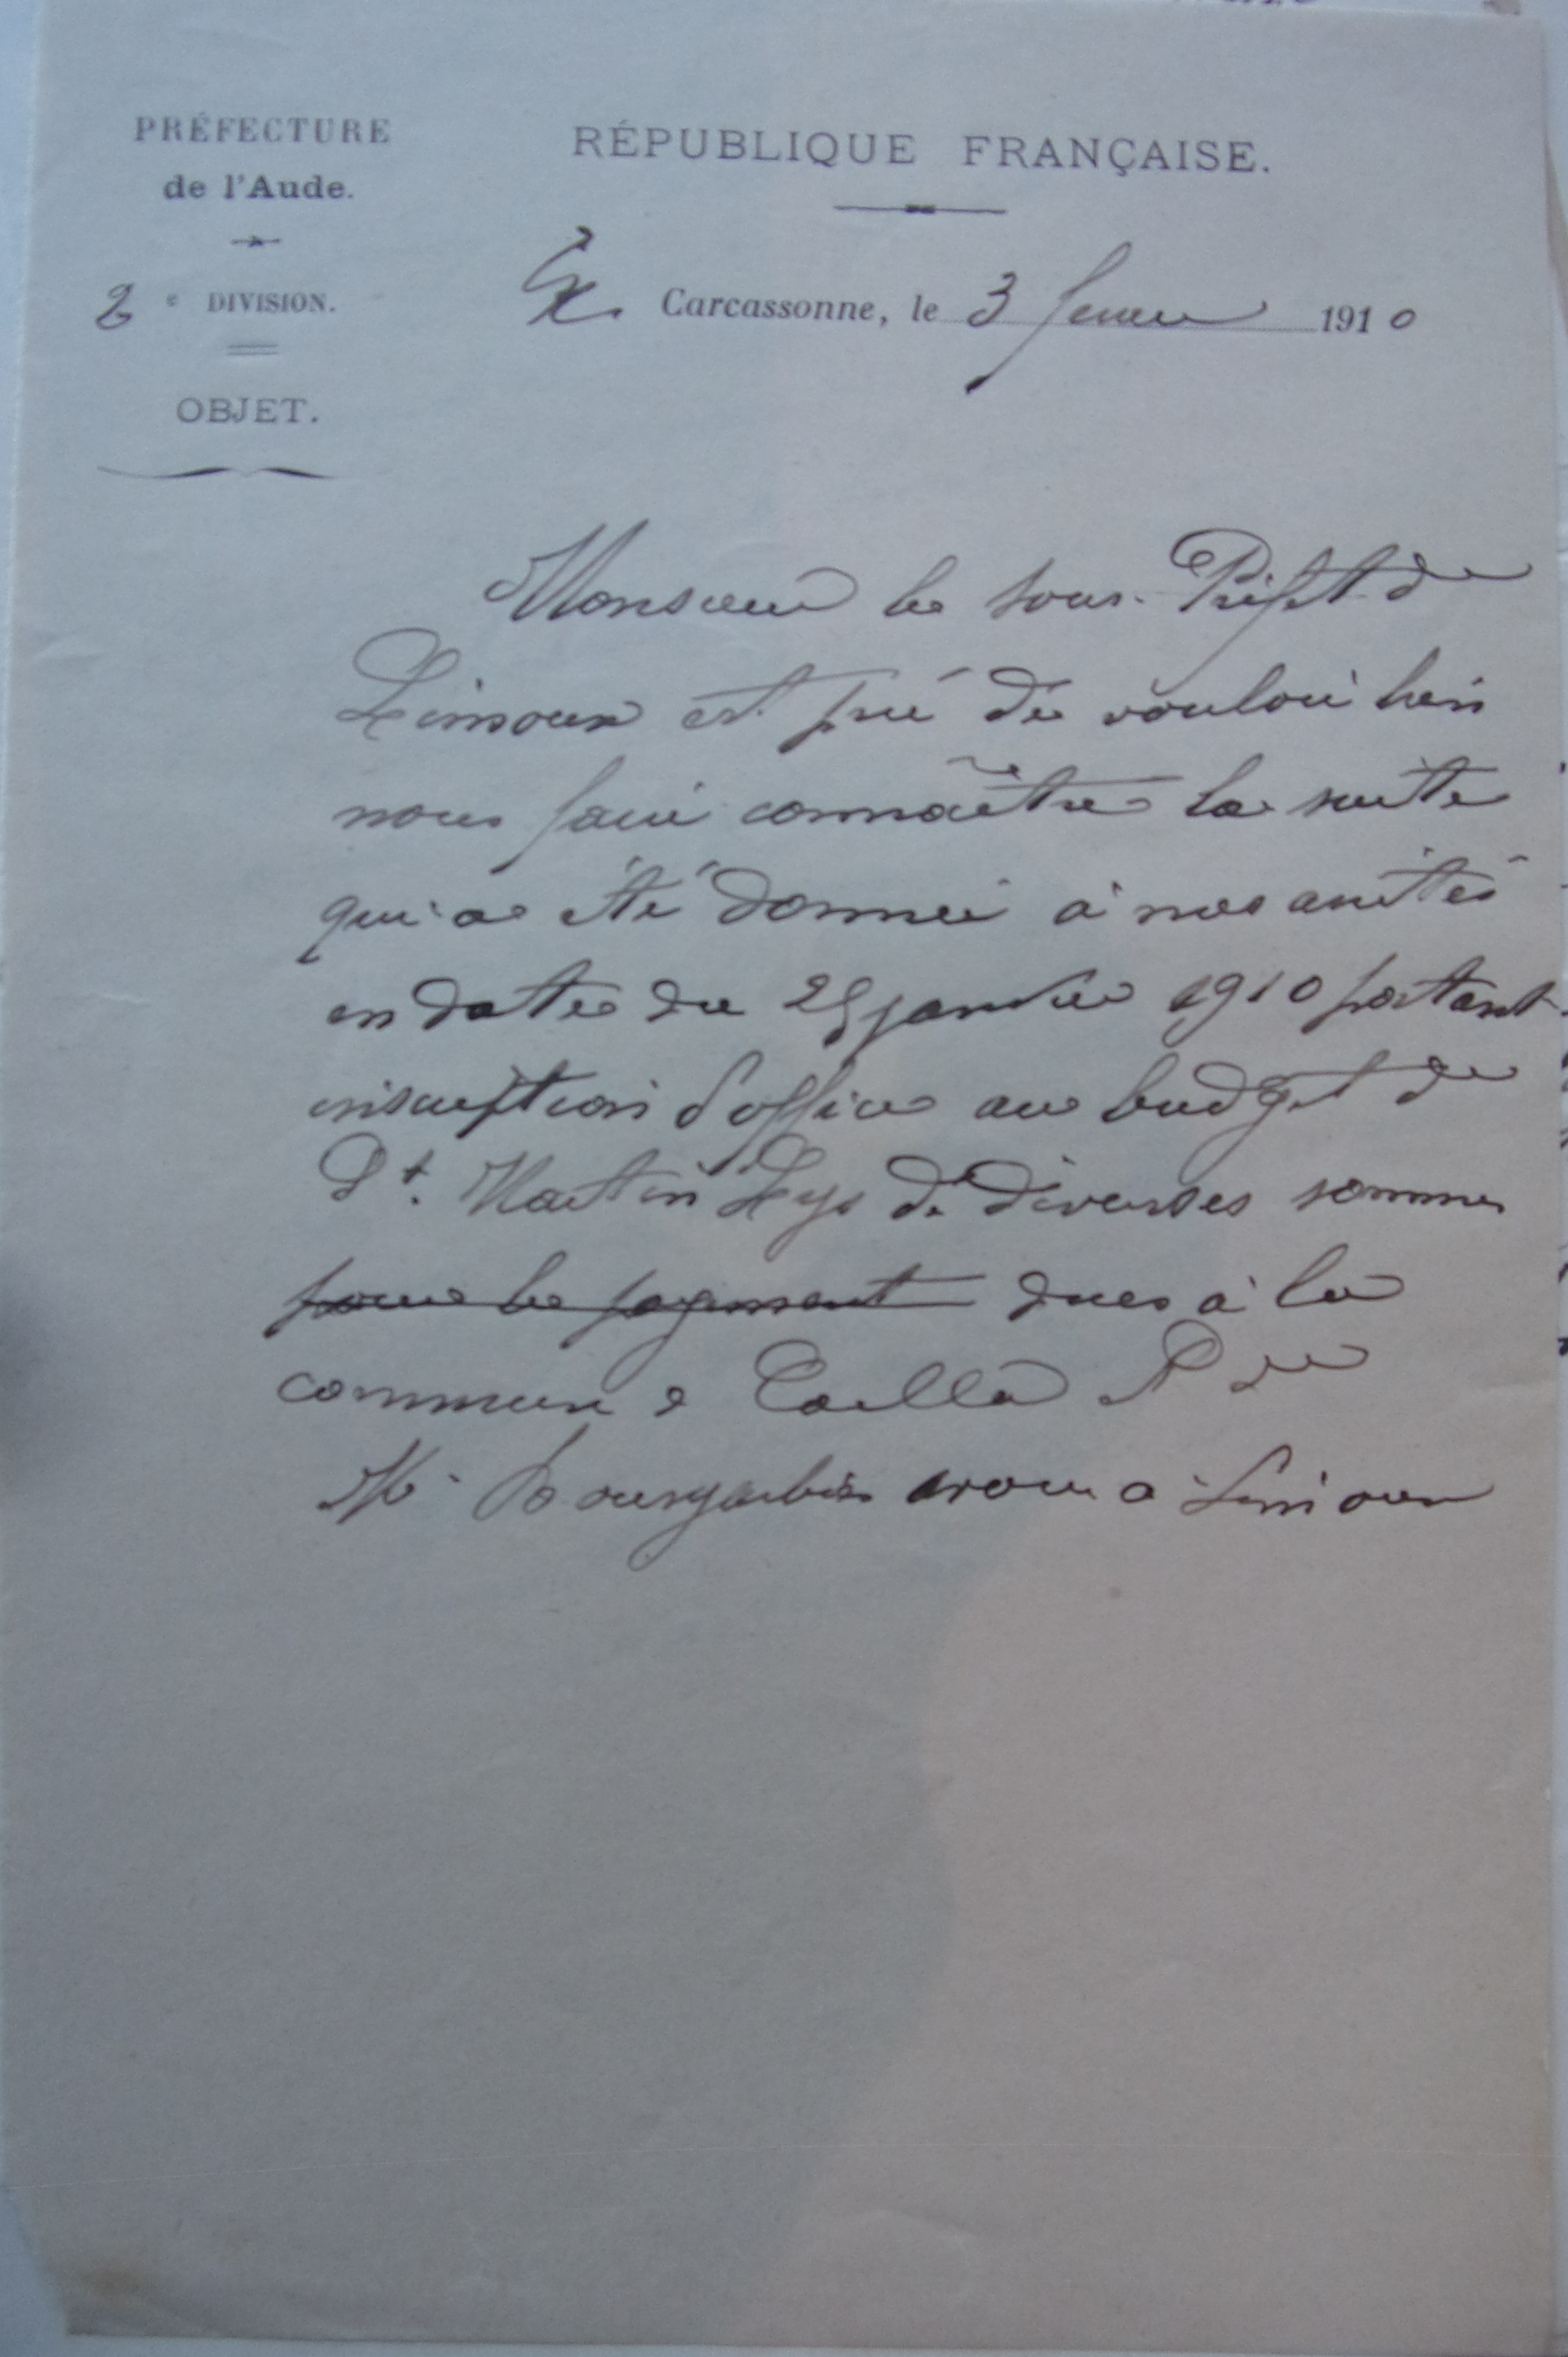 PRÉFECTURE
de l'Aude.
2e DIVISION.
OBJET.
RÉPUBLIQUE FRANÇAISE.
Carcassonne, le 3 fevrier 1910
Monsieur le Sous-Préfet de
Limoux est prié de vouloir bien
nous faire connaître la suite
qui a été donnée à nos arrêtés
en date du 25 janvier 1910 portant
inscription d'office au budget de
St. Martin Lys de diverses sommes
pour le payement dues à la
commune de Cailla
Mr avoué à Limoux